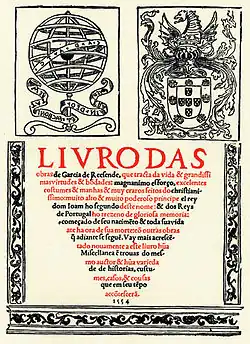 LIVRO DAS
obras de Garcia de Resende, que tracta da vida & grandissi
mas virtudes & bõdades: magnanimo esforço, excelentes
costumes & manhas & muy craros feitos do christiani-
ssimo: muito alto & muito poderoso principe el rey
dom Ioam ho segundo deste nome: & dos Reys
de Portugal ho treceno de gloriosa memoria:
começado de seu nacimẽto & toda sua vida
ate ha ora de sua morte: cõ outras obras
q̃ adiante se seguẽ. Vay mais acresẽ-
tado nouamente a este liuro hũa
Miscellanea & trouas do mes-
mo auctor & hũa varieda
de de historias, custu-
mes, casos, & cousas
que em seu tẽpo
accõtescerã.
1554